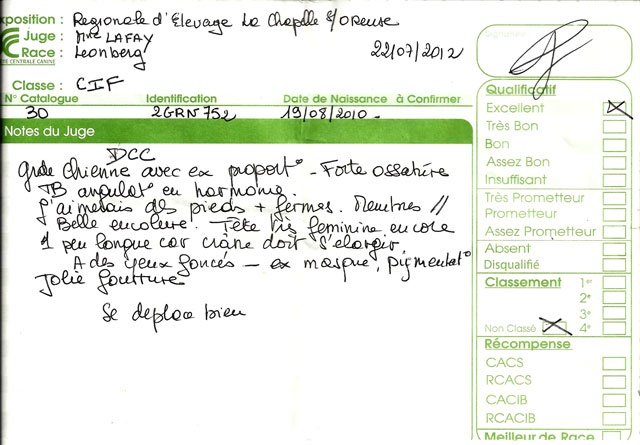 xposition : Regionale d'Elevage La Chapelle S/Oreuse
Juge : Mme LAFAY
Race : Leonberg
22/07/2012
TE CENTRALE CANINE
Classe : CIF
N° Catalogue Identification Date de Naissance à Confirmer
30 2GRN752 19/08/2010
Notes du Juge
DCC
Gde Chienne avec ex proport° - Forte ossature
TB angulat° en harmonie.
J'aimerais des pieds + fermes. Membres //
Belle encolure. Tête très feminine encore
1 peu longue car crâne doit s'elargir.
A des yeux foncés - ex masque, pigmentat°
Jolie fourrure
Se deplace bien
Signature
Qualificatif
Excellent
Très Bon
Bon
Assez Bon
Insuffisant
Très Prometteur
Prometteur
Assez Prometteur
Absent
Disqualifié
Classement 1er
2e
3e
Non Classé 4e
Récompense
CACS
RCACS
CACIB
RCACIB
Meilleur de Race